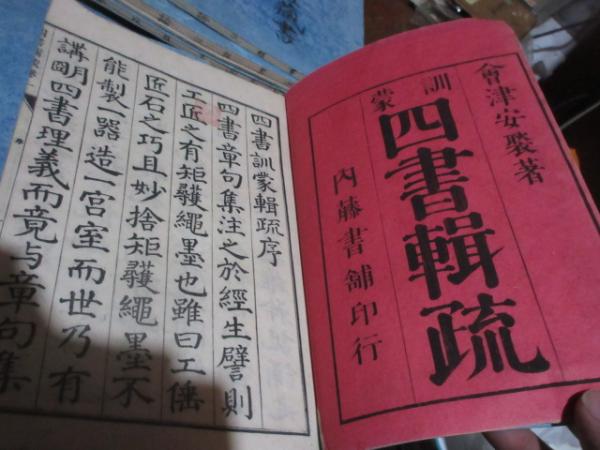 會津安褧著
訓蒙
四書輯疏
內藤書舖印行
四書訓蒙輯疏序
四書章句集注之於經生譬則
工匠之有矩矱繩墨也雖曰工倕
匠石之巧且妙捨矩矱繩墨不
能製器造一宮室而世乃有
講明四書理義而竟与章句集